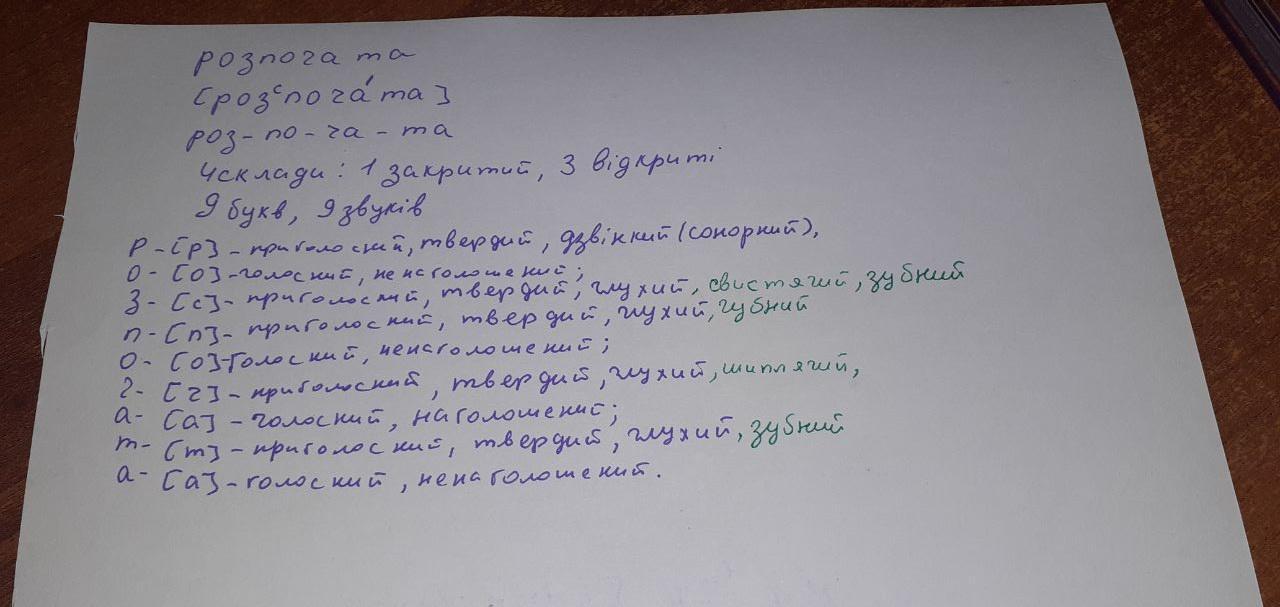 розпочата
[розᶜпоча́та]
роз-по-ча-та
4склади: 1 закритий, 3 відкриті
9 букв, 9 звуків
р-[р]-приголосний, твердий, дзвінкий (сонорний),
о-[о]-голосний, ненаголошений;
з-[с]-приголосний, твердий, глухий, свистячий, зубний
п-[п]-приголосний, твердий, глухий, губний
о-[о]-голосний, ненаголошений;
ч-[ч]-приголосний, твердий, глухий, шиплячий,
а-[а]-голосний, наголошений;
т-[т]-приголосний, твердий, глухий, зубний
а-[а]-голосний, ненаголошений.